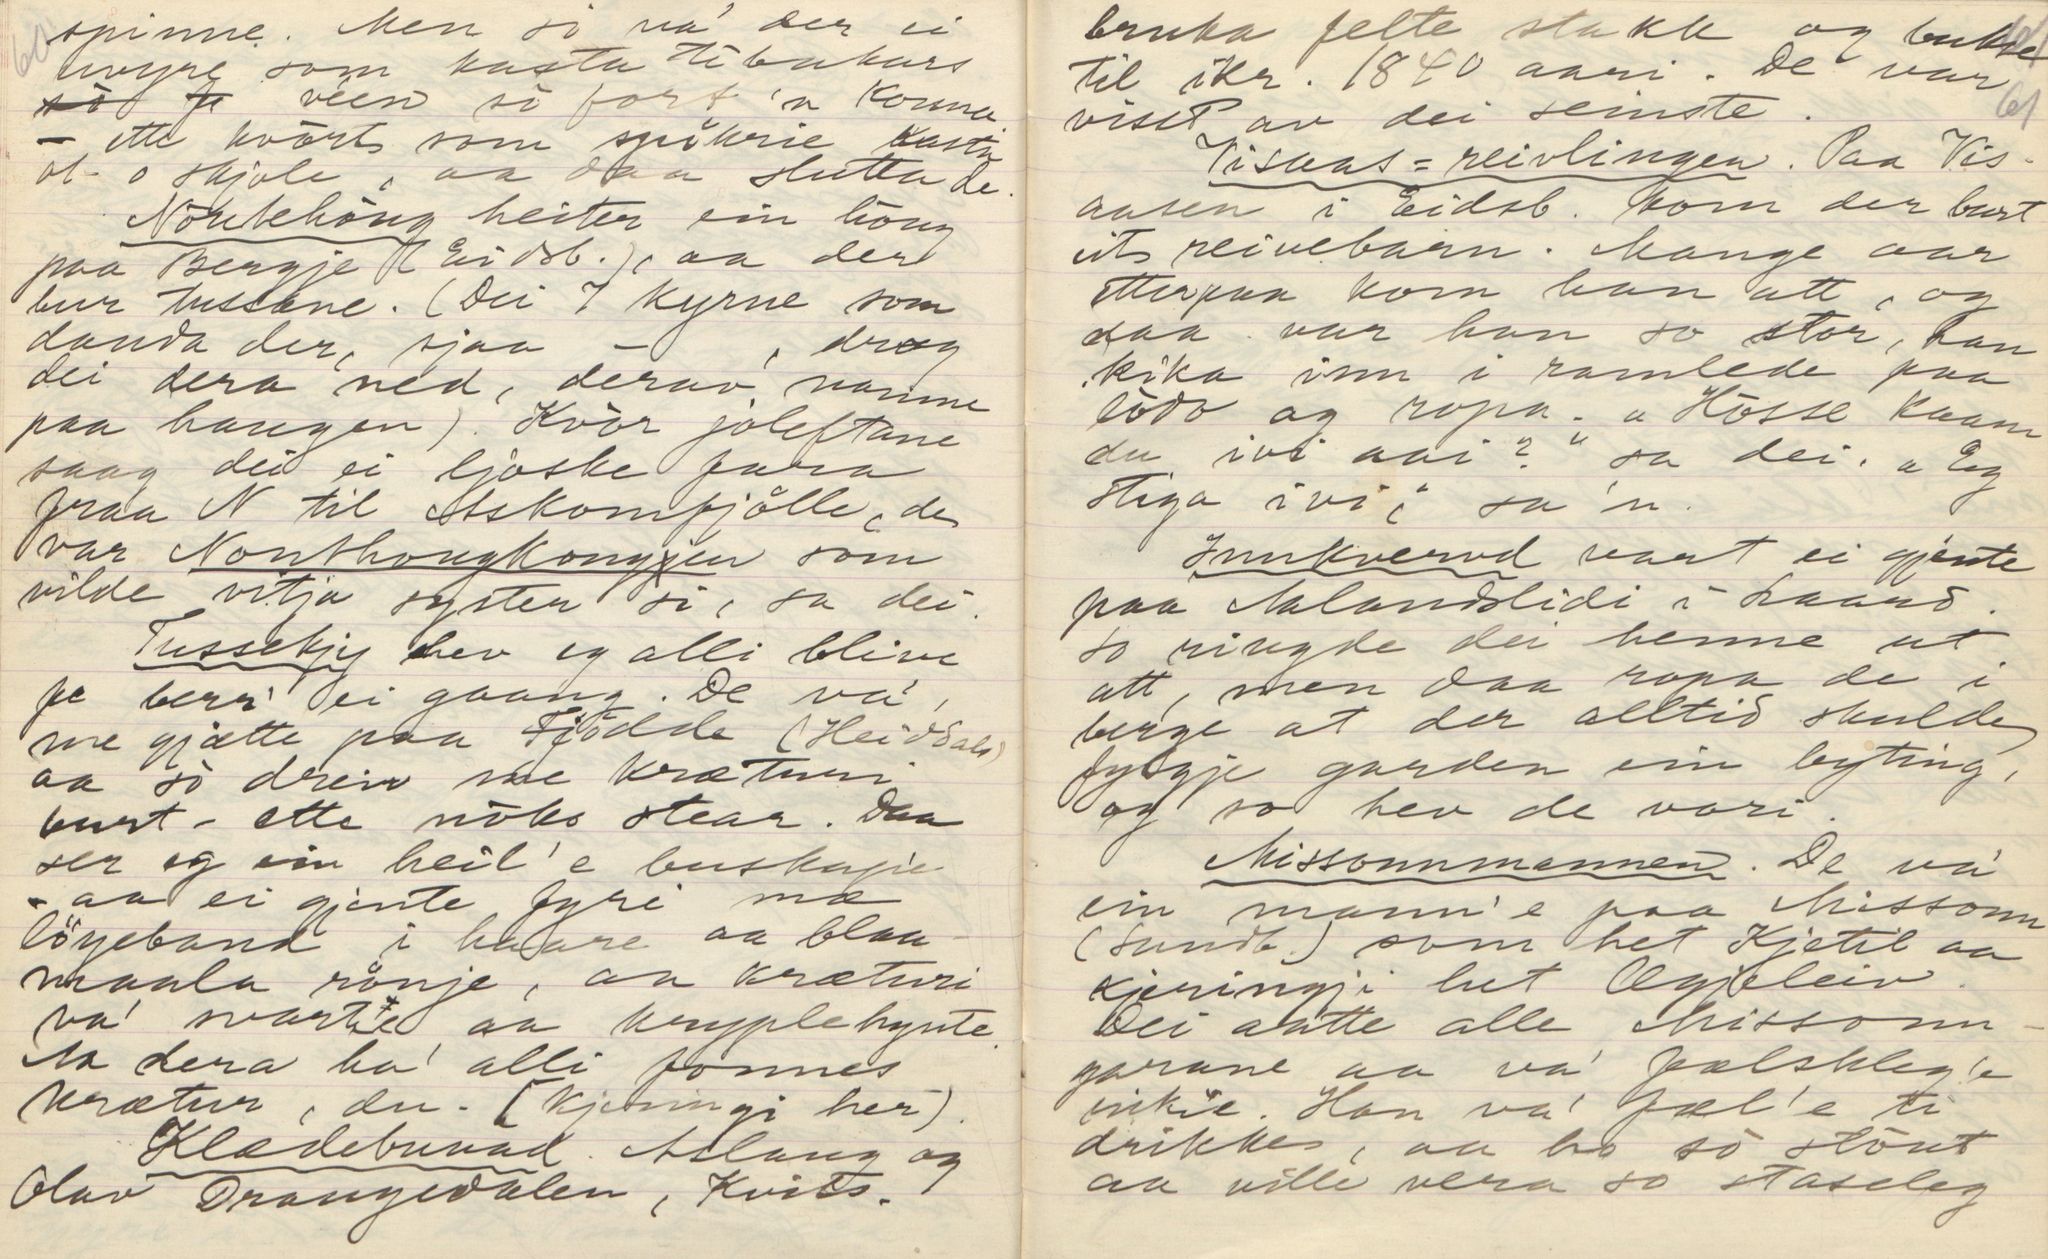 60
spinne. Men so va' der ei
uvyre som kasta tebakars
véen so fort 'n konna
- ette kvört som spikrie kasta
ot o skjole, aa daa slutta de.
Nonthöug heiter ein höug
paa Bergje (Eidsb.), aa der
bur tussane. (Dei 7 kyrne som
dauda der, sjaa - , drog
dei dera ned, derav namne
paa haugen). Kvòr joleftane
saag dei ei ljoske fara
fraa N til Askomfjölle, de
var Nonthougkongjen som
vilde vitja syster si, sa dei.
Tussekjy hev eg alli blive
berr' ei gaang. De va',
me gjætte paa Fjödde (Heiddals)
aa so dreiv me kræturi
burt - ette nöko stear. Daa
ser eg ein heil'e buskapie
- aa ei gjente fyri mæ
löyeband i haare aa blaa-
maala rönje, aa kræturi
va' svarte aa kryplehynte.
Aa dera ha' alli fonnes
krætur, du. (Kjeringi her).
Klædebunad. Aslaug og
Olav Drangedalen, Kvits.
61
bruka felte stakk og bukse
til ikr. 1840 aari. De var
visst av dei seinste.
Visaas-reivlingen. Paa Vis-
aasen i Eidsb. kom der burt
eit reivebarn. Mange aar
etterpaa kom han att, og
daa var han so stor, han
kika inn i ramlede paa
lödo og ropa. "Hösse kaam
du ivi aai?" sa dei. "Eg
stiga ivi", sa 'n.
Innkvervd vart ei gjente
paa Aalandslidi i Laard.
So ringde dei henne ut
att, men daa ropa de i
berge at der alltid skulde
fylgje garden ein byting,
og so hev de vori.
Missounmannen. De va'
ein mann'e paa Missoun
(Sundb.) som het Kjetil aa
kjeringji het Øgjeleiv.
Dei aatte alle Missoun-
garane aa va' fælskleg'e
rikie. Han va' fæl'e ti
drikke, aa ho so stöut
aa ville vera so staseleg